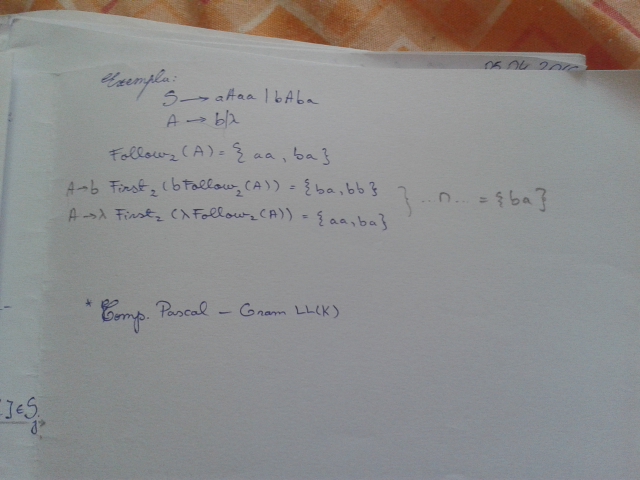 Exemplu:
S → aAaa | bAba
A → b/λ
Follow₂(A) = {aa, ba}
A→b First₂(bFollow₂(A)) = {ba, bb}
A→λ First₂(λFollow₂(A)) = {aa, ba} } ... ∩ ... = {ba}
* Comp. Pascal – Gram LL(K)